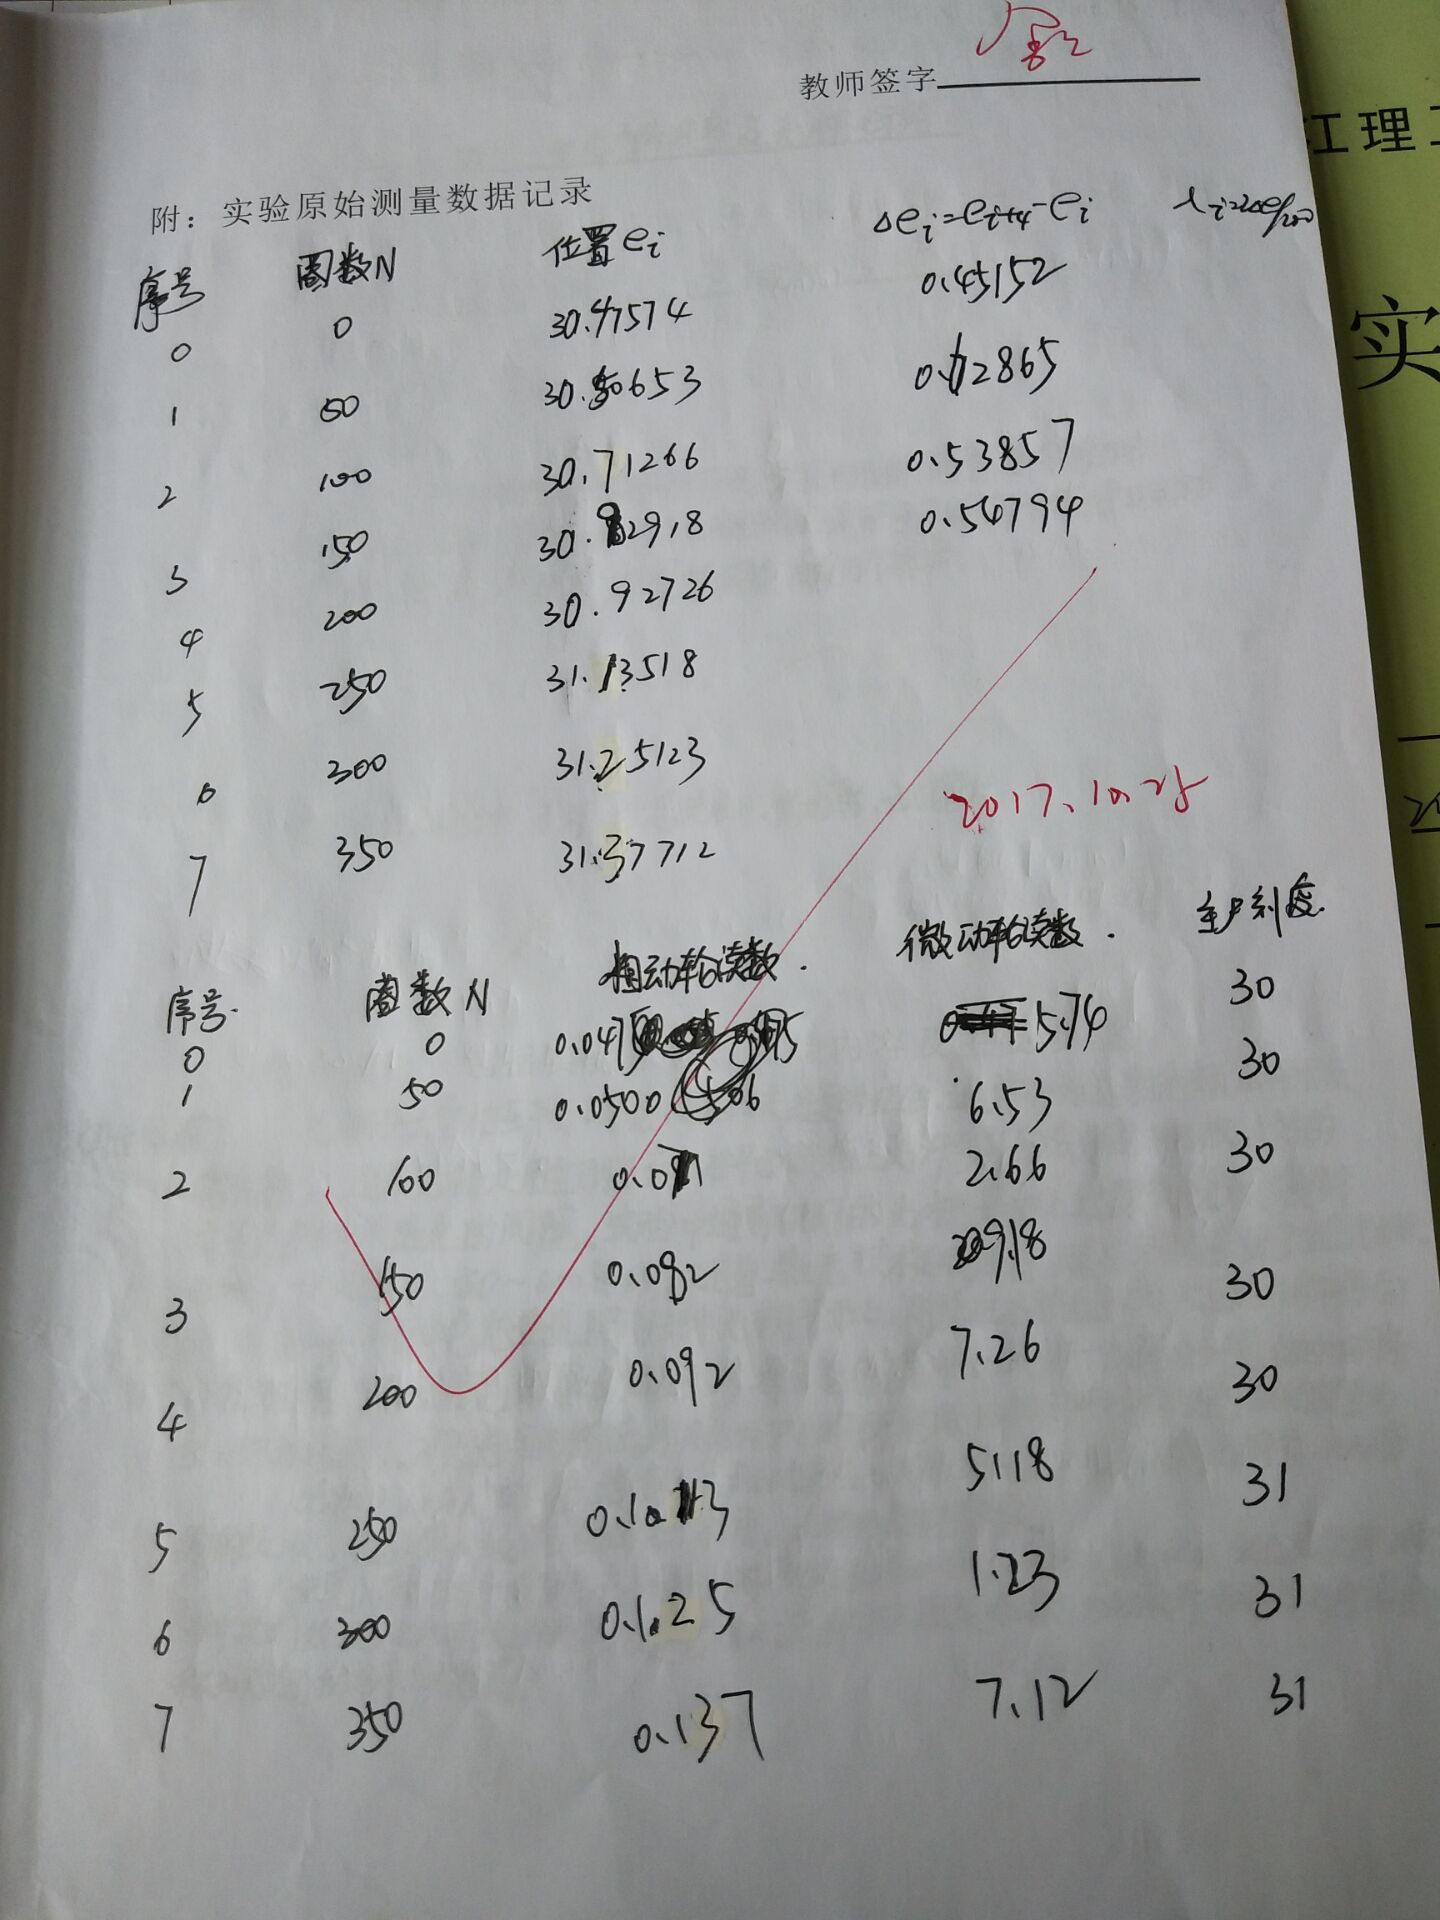 教师签字
附：实验原始测量数据记录
序号 圈数N 位置ei Δei=ei+4-ei λi=2Δe/200
0 0 30.47574 0.45152
1 50 30.50653 0.62865
2 100 30.71266 0.53857
3 150 30.82918 0.54794
4 200 30.92726
5 250 31.13518
6 300 31.25123
7 350 31.37712
2017.10.25
序号 圈数N 粗动轮读数 微动轮读数 主尺刻度
0 0 0.047 5.74 30
1 50 0.0500 6.53 30
2 100 0.071 2.66 30
3 150 0.082 9.18 30
4 200 0.092 7.26 30
5 250 0.113 5.18 31
6 300 0.125 1.23 31
7 350 0.137 7.12 31
江理工
实